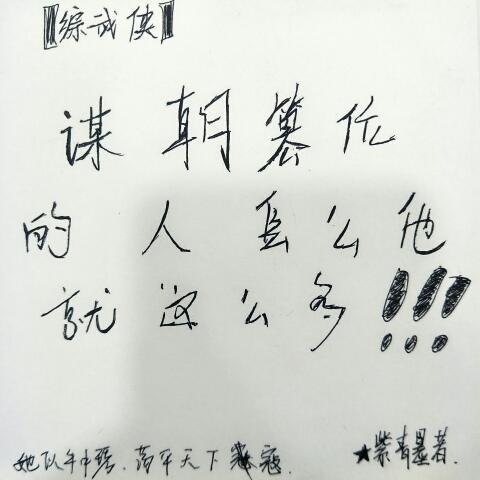 【综武侠】
谋朝篡位
的人怎么他
就这么多!!!
她以手中琴.荡平天下寇. ★紫青墨著.